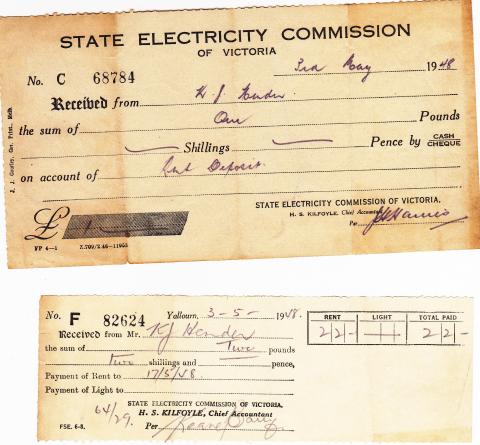 STATE ELECTRICITY COMMISSION
OF VICTORIA
No. C 68784 3rd May 1948
Received from K. J. Hender
the sum of One Pounds
Shillings Pence by CASH CHEQUE
on account of Deposit
STATE ELECTRICITY COMMISSION OF VICTORIA.
H. S. KILFOYLE, Chief Accountant
£ 1 Per
FP 4—1
J. J. Gourley, Gov. Print., Melb.
No. F 82624 Yallourn, 3-5-1948.
Received from Mr. KJ Hender
the sum of Two pounds
Two shillings and pence,
Payment of Rent to 17/5/48.
Payment of Light to
STATE ELECTRICITY COMMISSION OF VICTORIA.
64/29. H. S. KILFOYLE, Chief Accountant
FSE. 6-8. Per
RENT LIGHT TOTAL PAID
2 2 - 2 2 -